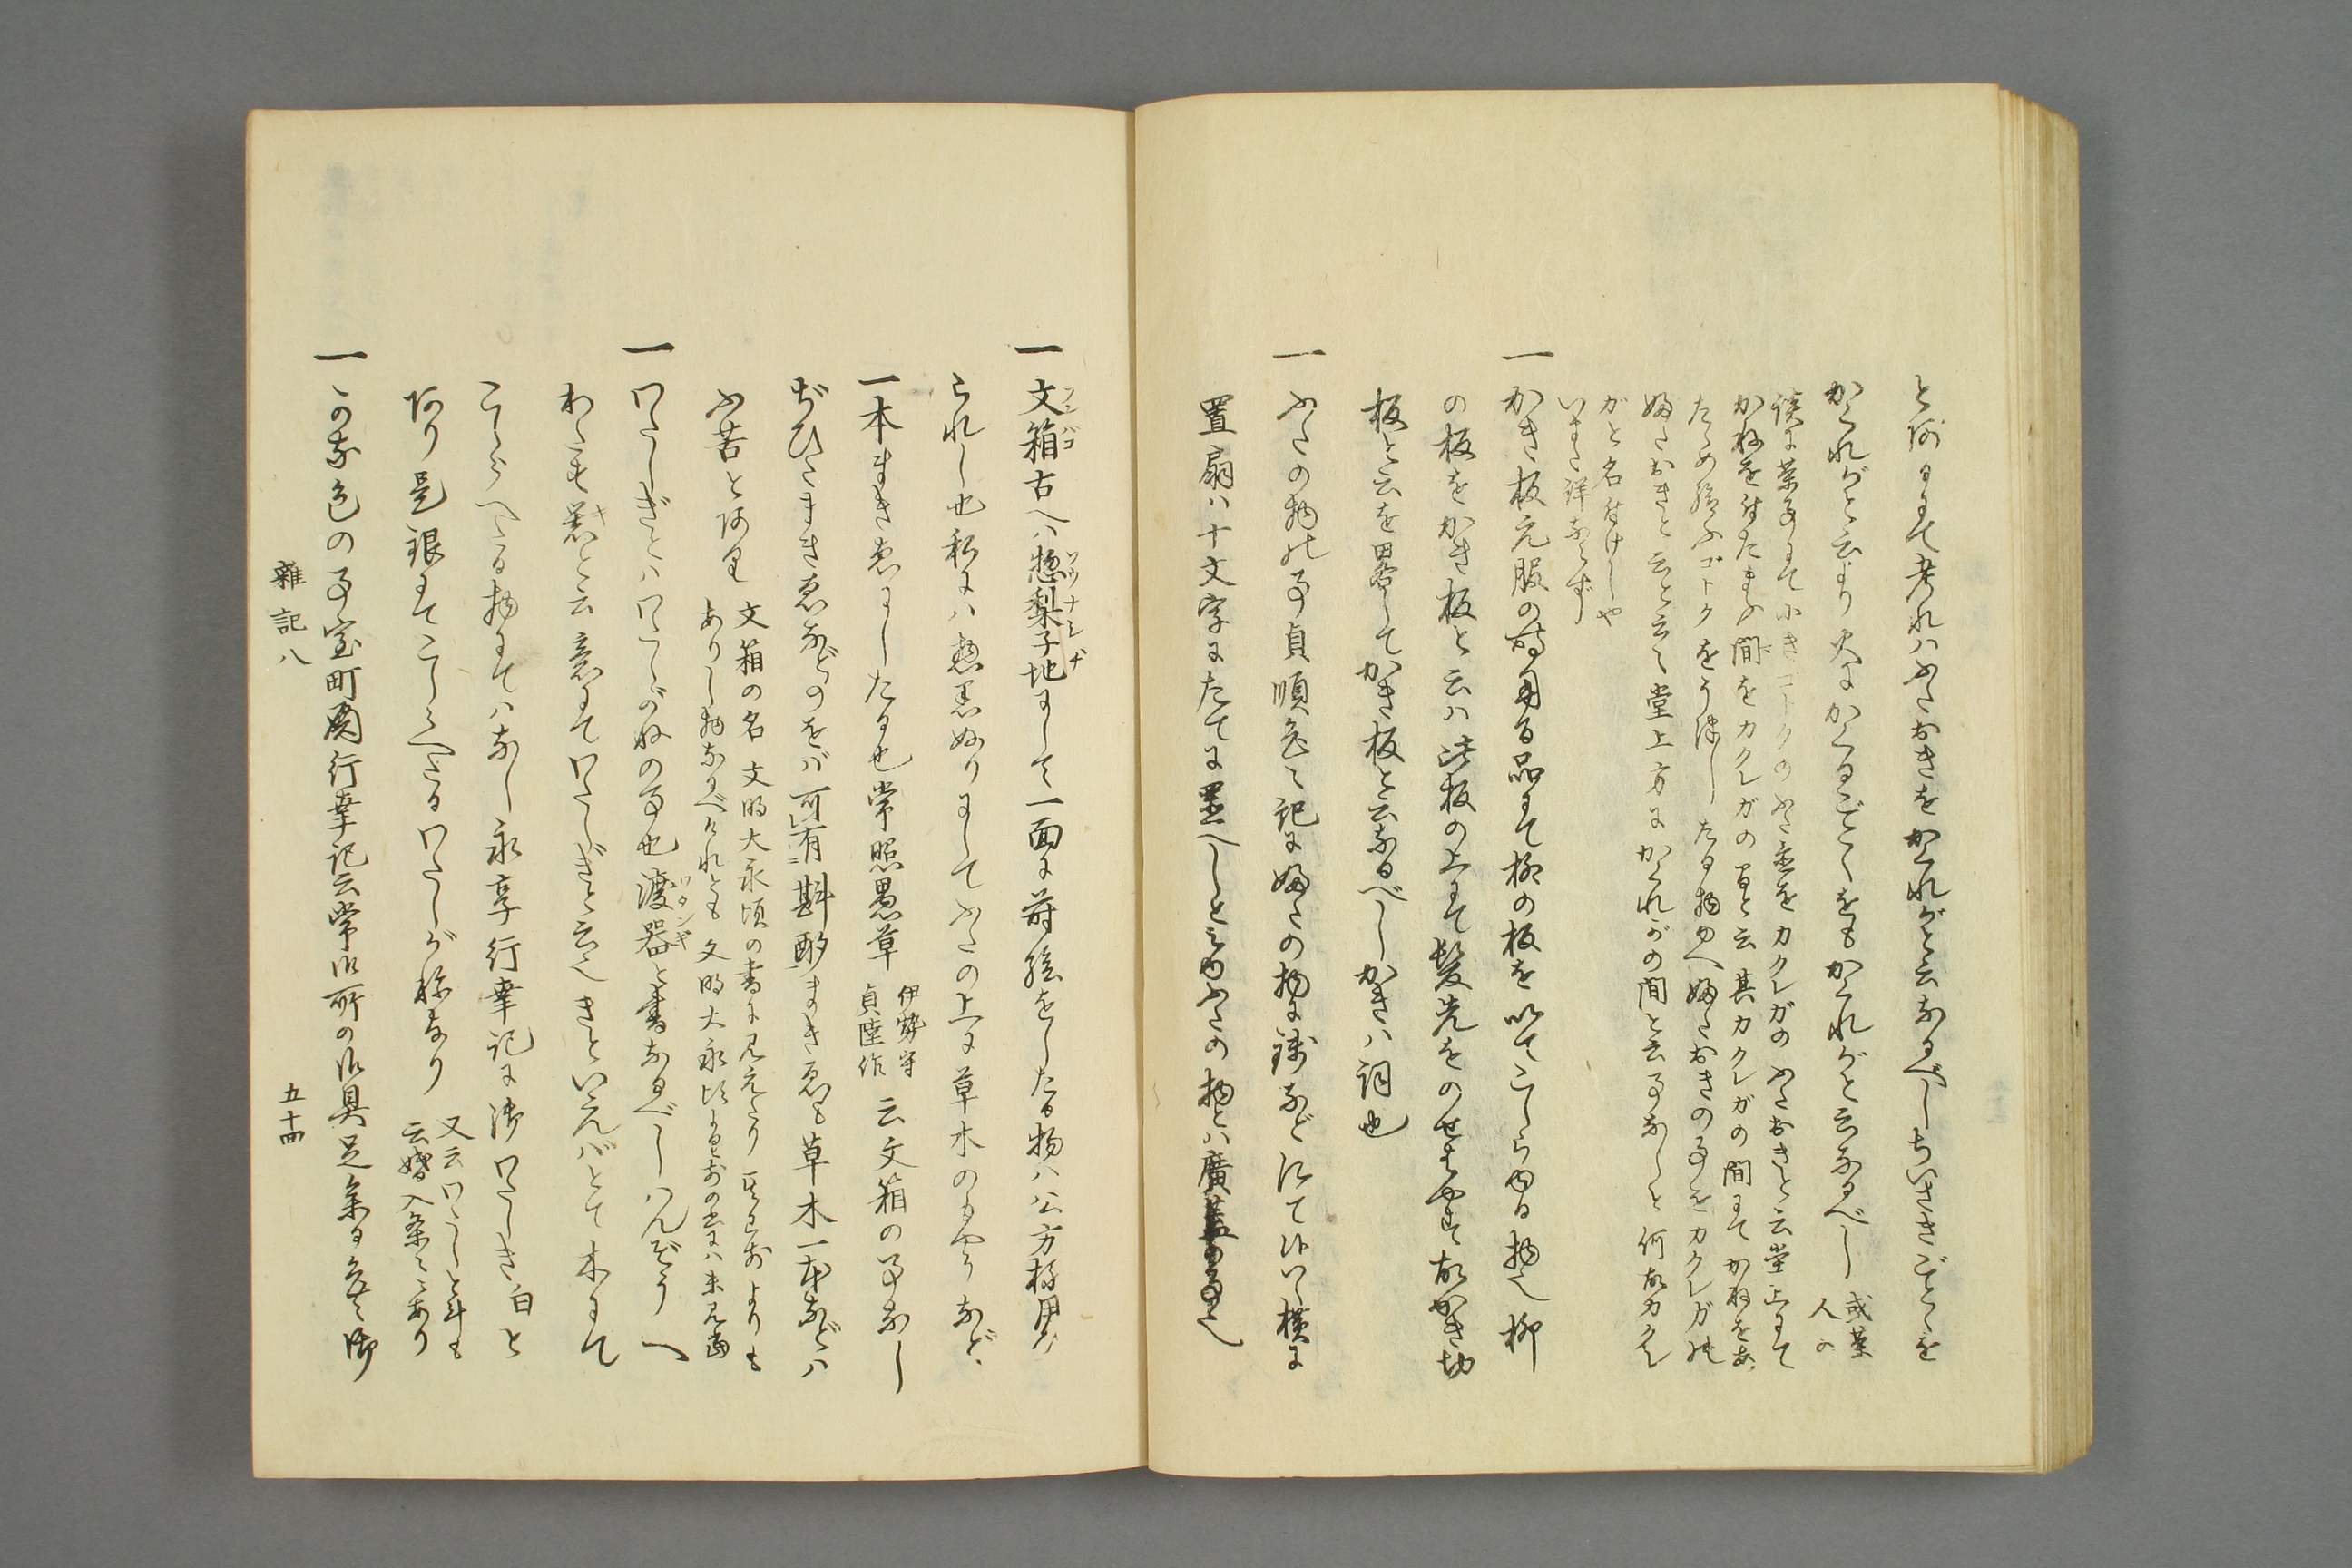 とあるにて考れハふたおきをかくれがと云なるべしちいさきごとくを
かくれがと云より火にかくるごとくをもかくれがと云なるべし 或茶人の
談に茶事にて小きゴトクのふた置をカクレガのふたおきと云堂上にて
かねを付たまふ間をカクレガの間と云其カクレガの間にてかねをあ
たため給ふゴトクをうつしたる物ゆへふたおきの事をカクレガの
ふたおきと云と云々堂上方にかくれがの間と云事なしと何故カクレ
がと名付けしや
いまた詳ならず
一 かき板元服の時用る品にて柳の板を以てこしらゆる物也柳
の板をかき板と云ハ此板の上にて髪先をのせはやす故かき切
板と云を畧してかき板と云なるべしかきハ詞也
一 ふたの物の事貞順矣々記にふたの物に鏡など法て候ハヽ横に
置扇ハ十文字にたてに置へしとみゆふたの物とハ廣蓋の事也
一 文箱古へハ惣梨子地にして一面に蒔絵をしたる物ハ公方様用ひ
られし也私にハ惣黒ぬりにしてふたの上に草木のもやうなど
一本まきゑにしたる也常照愚草 伊勢守貞陸作 云文箱の事なし
ぢひたまきゑなどのをバ可有斟酌まきゑも草木一本などハ
不苦とあり 文箱の名文明大永頃の書に見えたり其以前よりも
ありし物なるべけれども文明大永比より前の書にハ未見當
一 わたしぎとハわたしがねの事也渡器と書なるべしはんぞうへ
わたす器と云意にてわたしぎと云へきといえバとて木にて
こしらへたる物にてハなし永享行幸記に御わたしき白と
あり是銀にてこしらへたるわたしがねなり 又云わたしと斗も
云婚入条々にあり
一 この衣色の事室町殿行幸記云常御所の御具足条々矣々御
雑記八
五十四